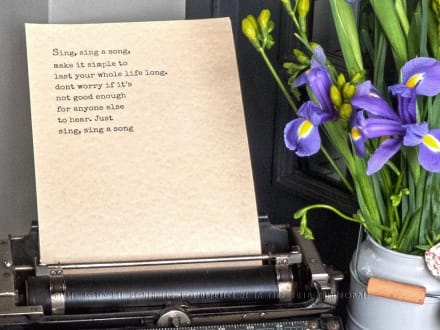 Sing, sing a song,
make it simple to
last your whole life long.
dont worry if it's
not good enough
for anyone else
to hear. Just
sing, sing a song